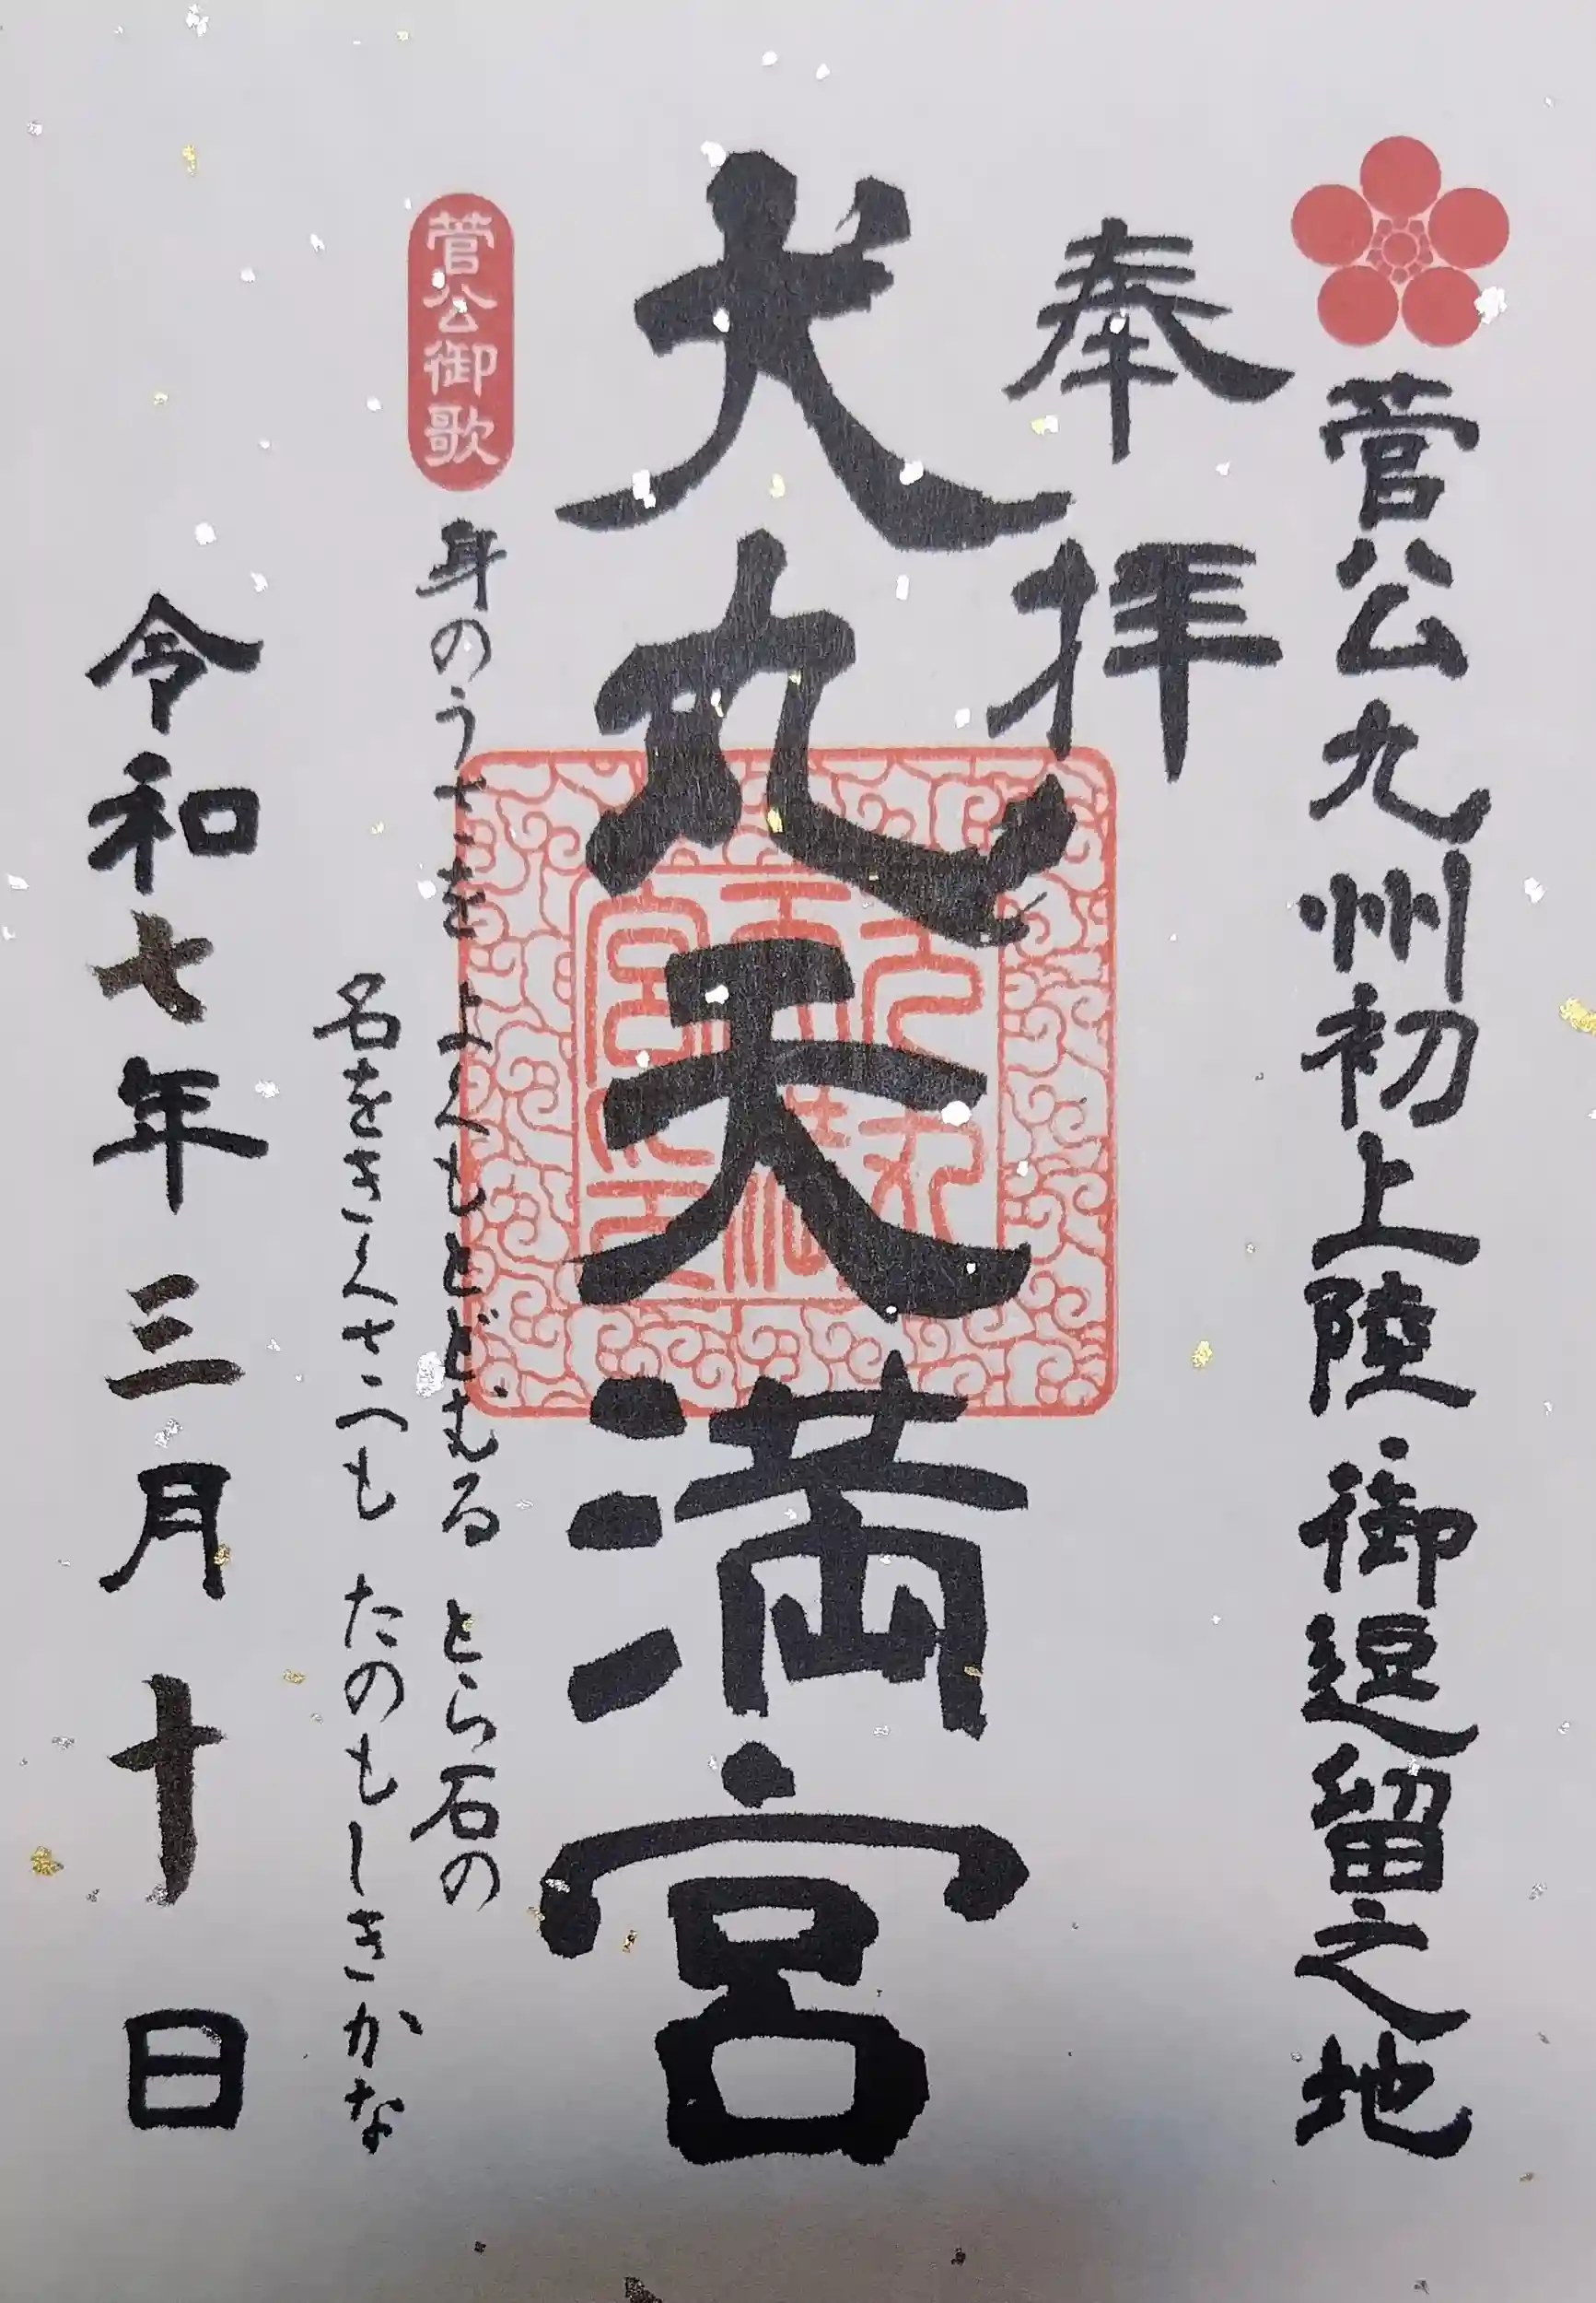 菅公九州初上陸・御逗留之地
奉拝
犬丸天満宮
菅公御歌
身のうきを よくもとどむる とら石の
名をきくさへも たのもしきかな
令和七年三月十日